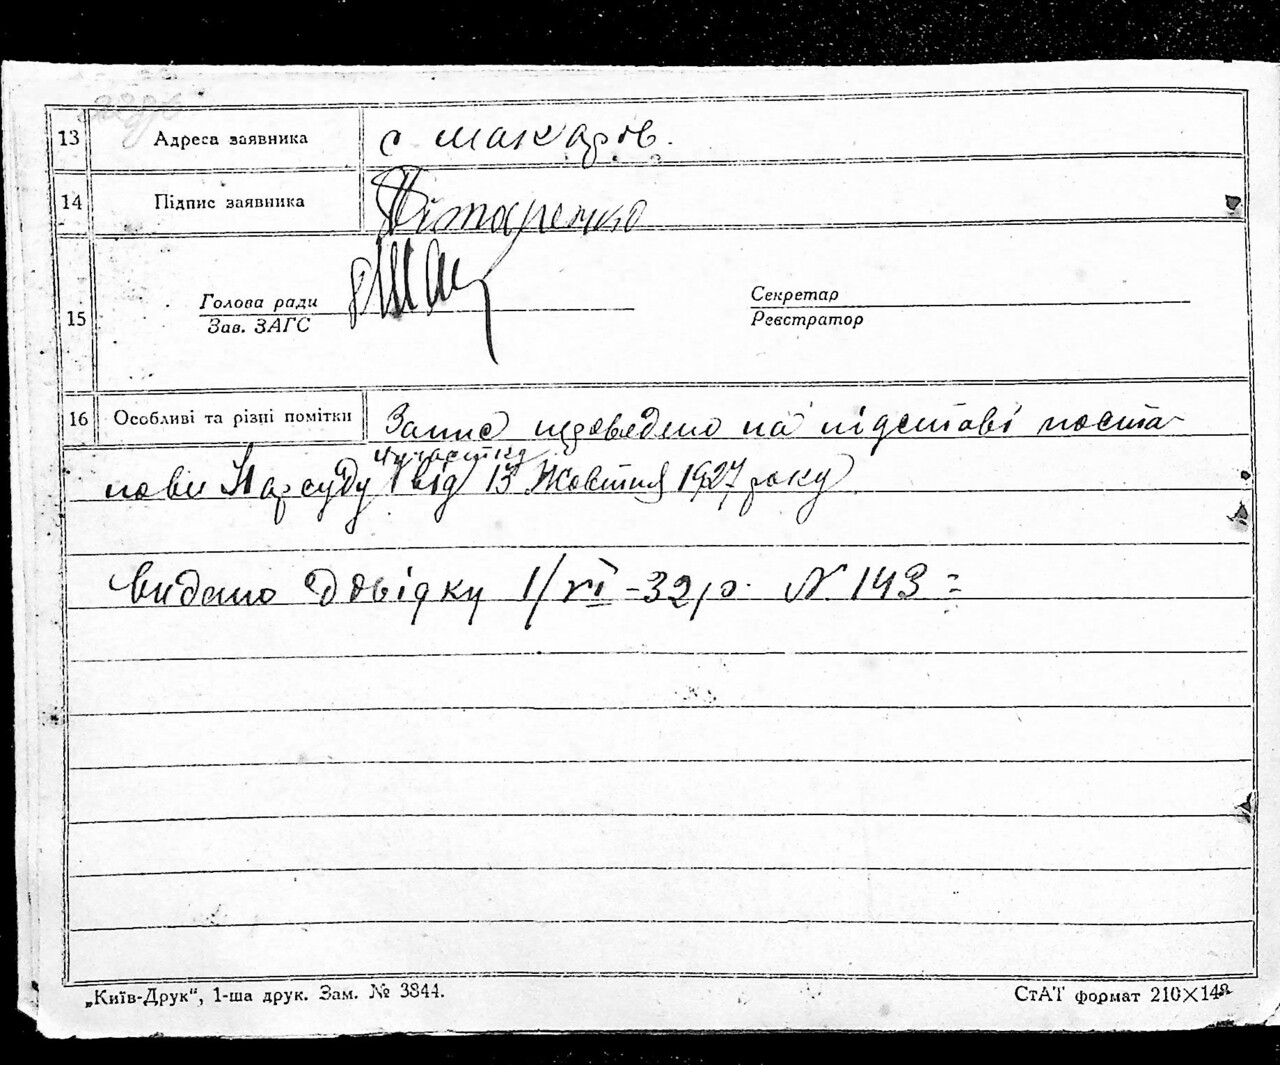 13 Адреса заявника с макаров.
14 Підпис заявника
15 Голова ради Секретар
Зав. ЗАГС Реєстратор
16 Особливі та різні помітки Запис проведено на підставі поста-
нови Нарсуду від 13 Жовтня 1927 року
видано довідку 1/VI-32 р. N. 143 =
„Київ-Друк“, 1-ша друк. Зам. № 3844. СтАТ формат 210×148